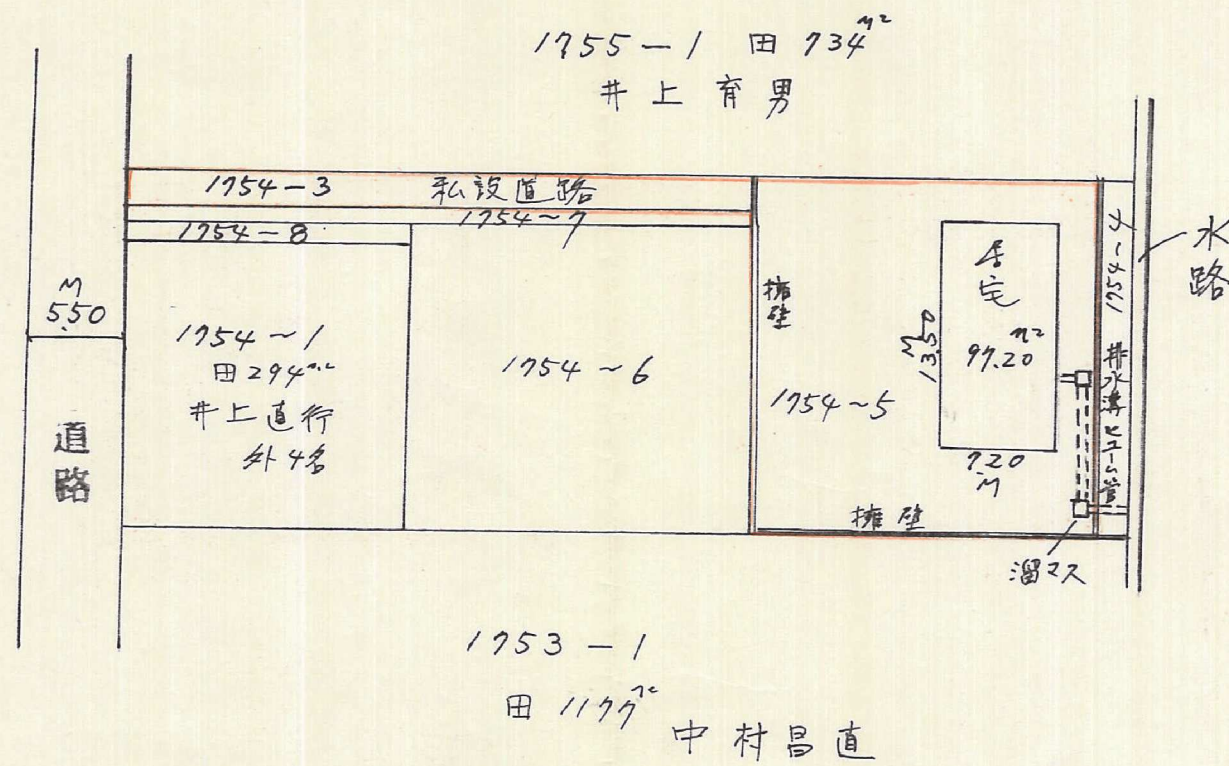 1755-1 田 734m²
井上育男
1754-3 私設道路
1754~7
1754-8
M
5.50
道路
1754~1
田294m²
井上直行
外4名
1754~6
擁壁
1754~5
居宅
97.20m²
13.50M
7.20
M
擁壁
1754-4
排水溝ヒューム管
水路
溜マス
1753-1
田 1177m²
中村昌直